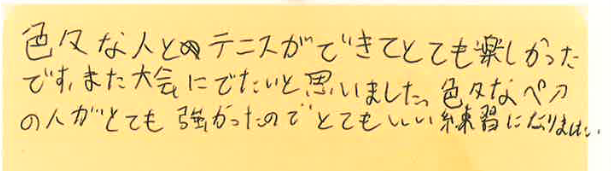 色々な人とのテニスができてとても楽しかった
です。また大会にでたいと思いました。色々なペア
の人がとても強かったのでとてもいい練習になりました。